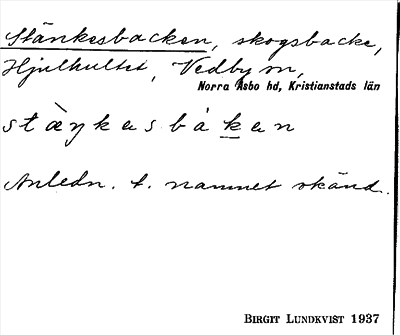 Stänkesbacken, skogsbacke,
Hjulhultet, Vedby sn,
Norra Åsbo hd, Kristianstads län
stæ̀ŋkesbáken
Anledn. t. namnet okänd.
BIRGIT LUNDKVIST 1937